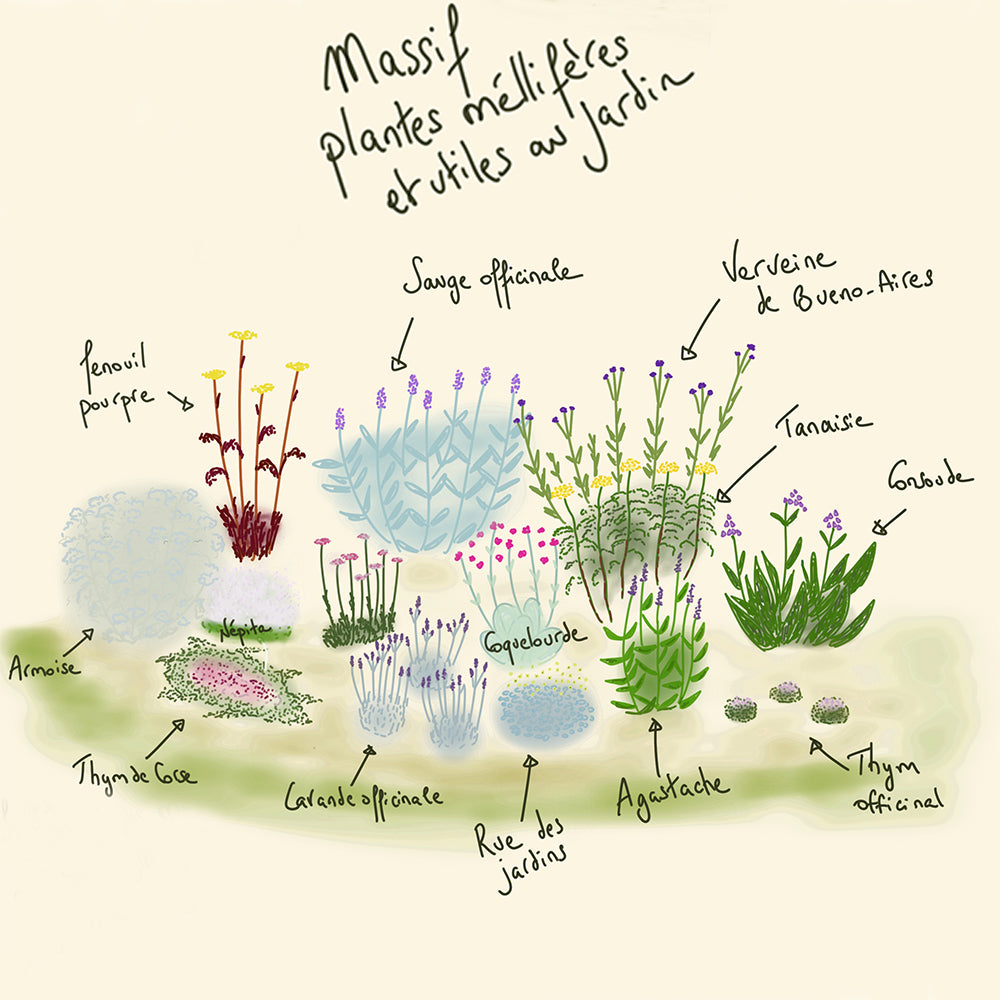 Massif
plantes méllifères
et utiles au Jardin
Sauge officinale
Verveine
de Bueno-Aires
fenouil
pourpre
Tanaisie
Consoude
Népita
Coquelourde
Armoise
Thym de Corse
Lavande officinale
Agastache
Thym
officinal
Rue des
jardins